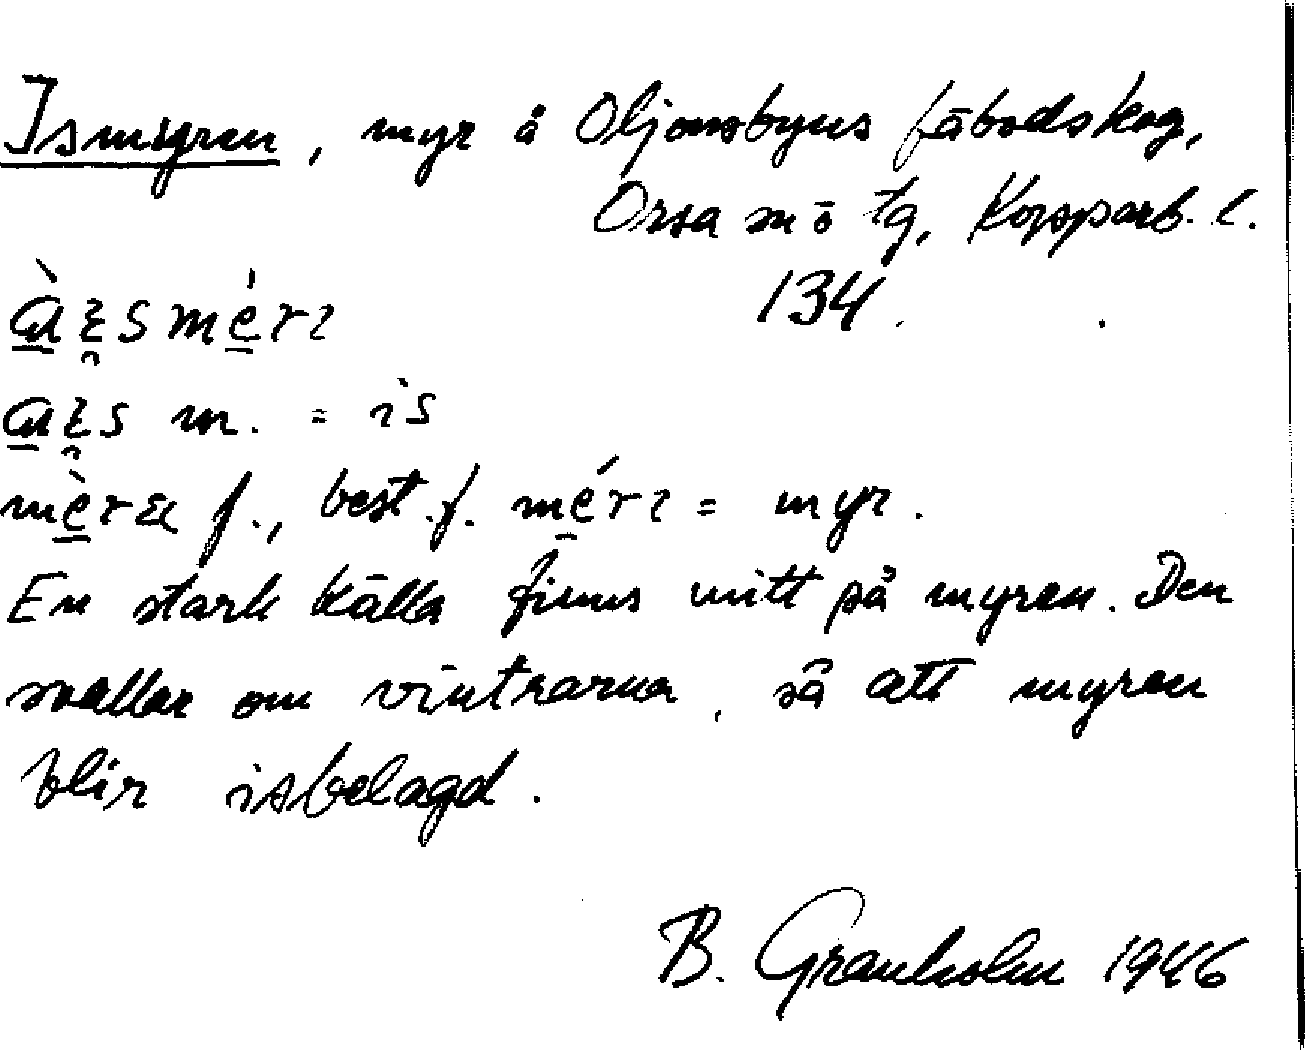 Ismyren, myr å Oljonsbyns fäbodskog,
Orsa sn ö tg, Kopparb. l.
134.
àısmérı
aıs m. = is
mèra f., best. f. mérı = myr.
En stark källa finns mitt på myren. Den
svallar om vintrarna, så att myren
blir isbelagd.
B. Granholm 1946